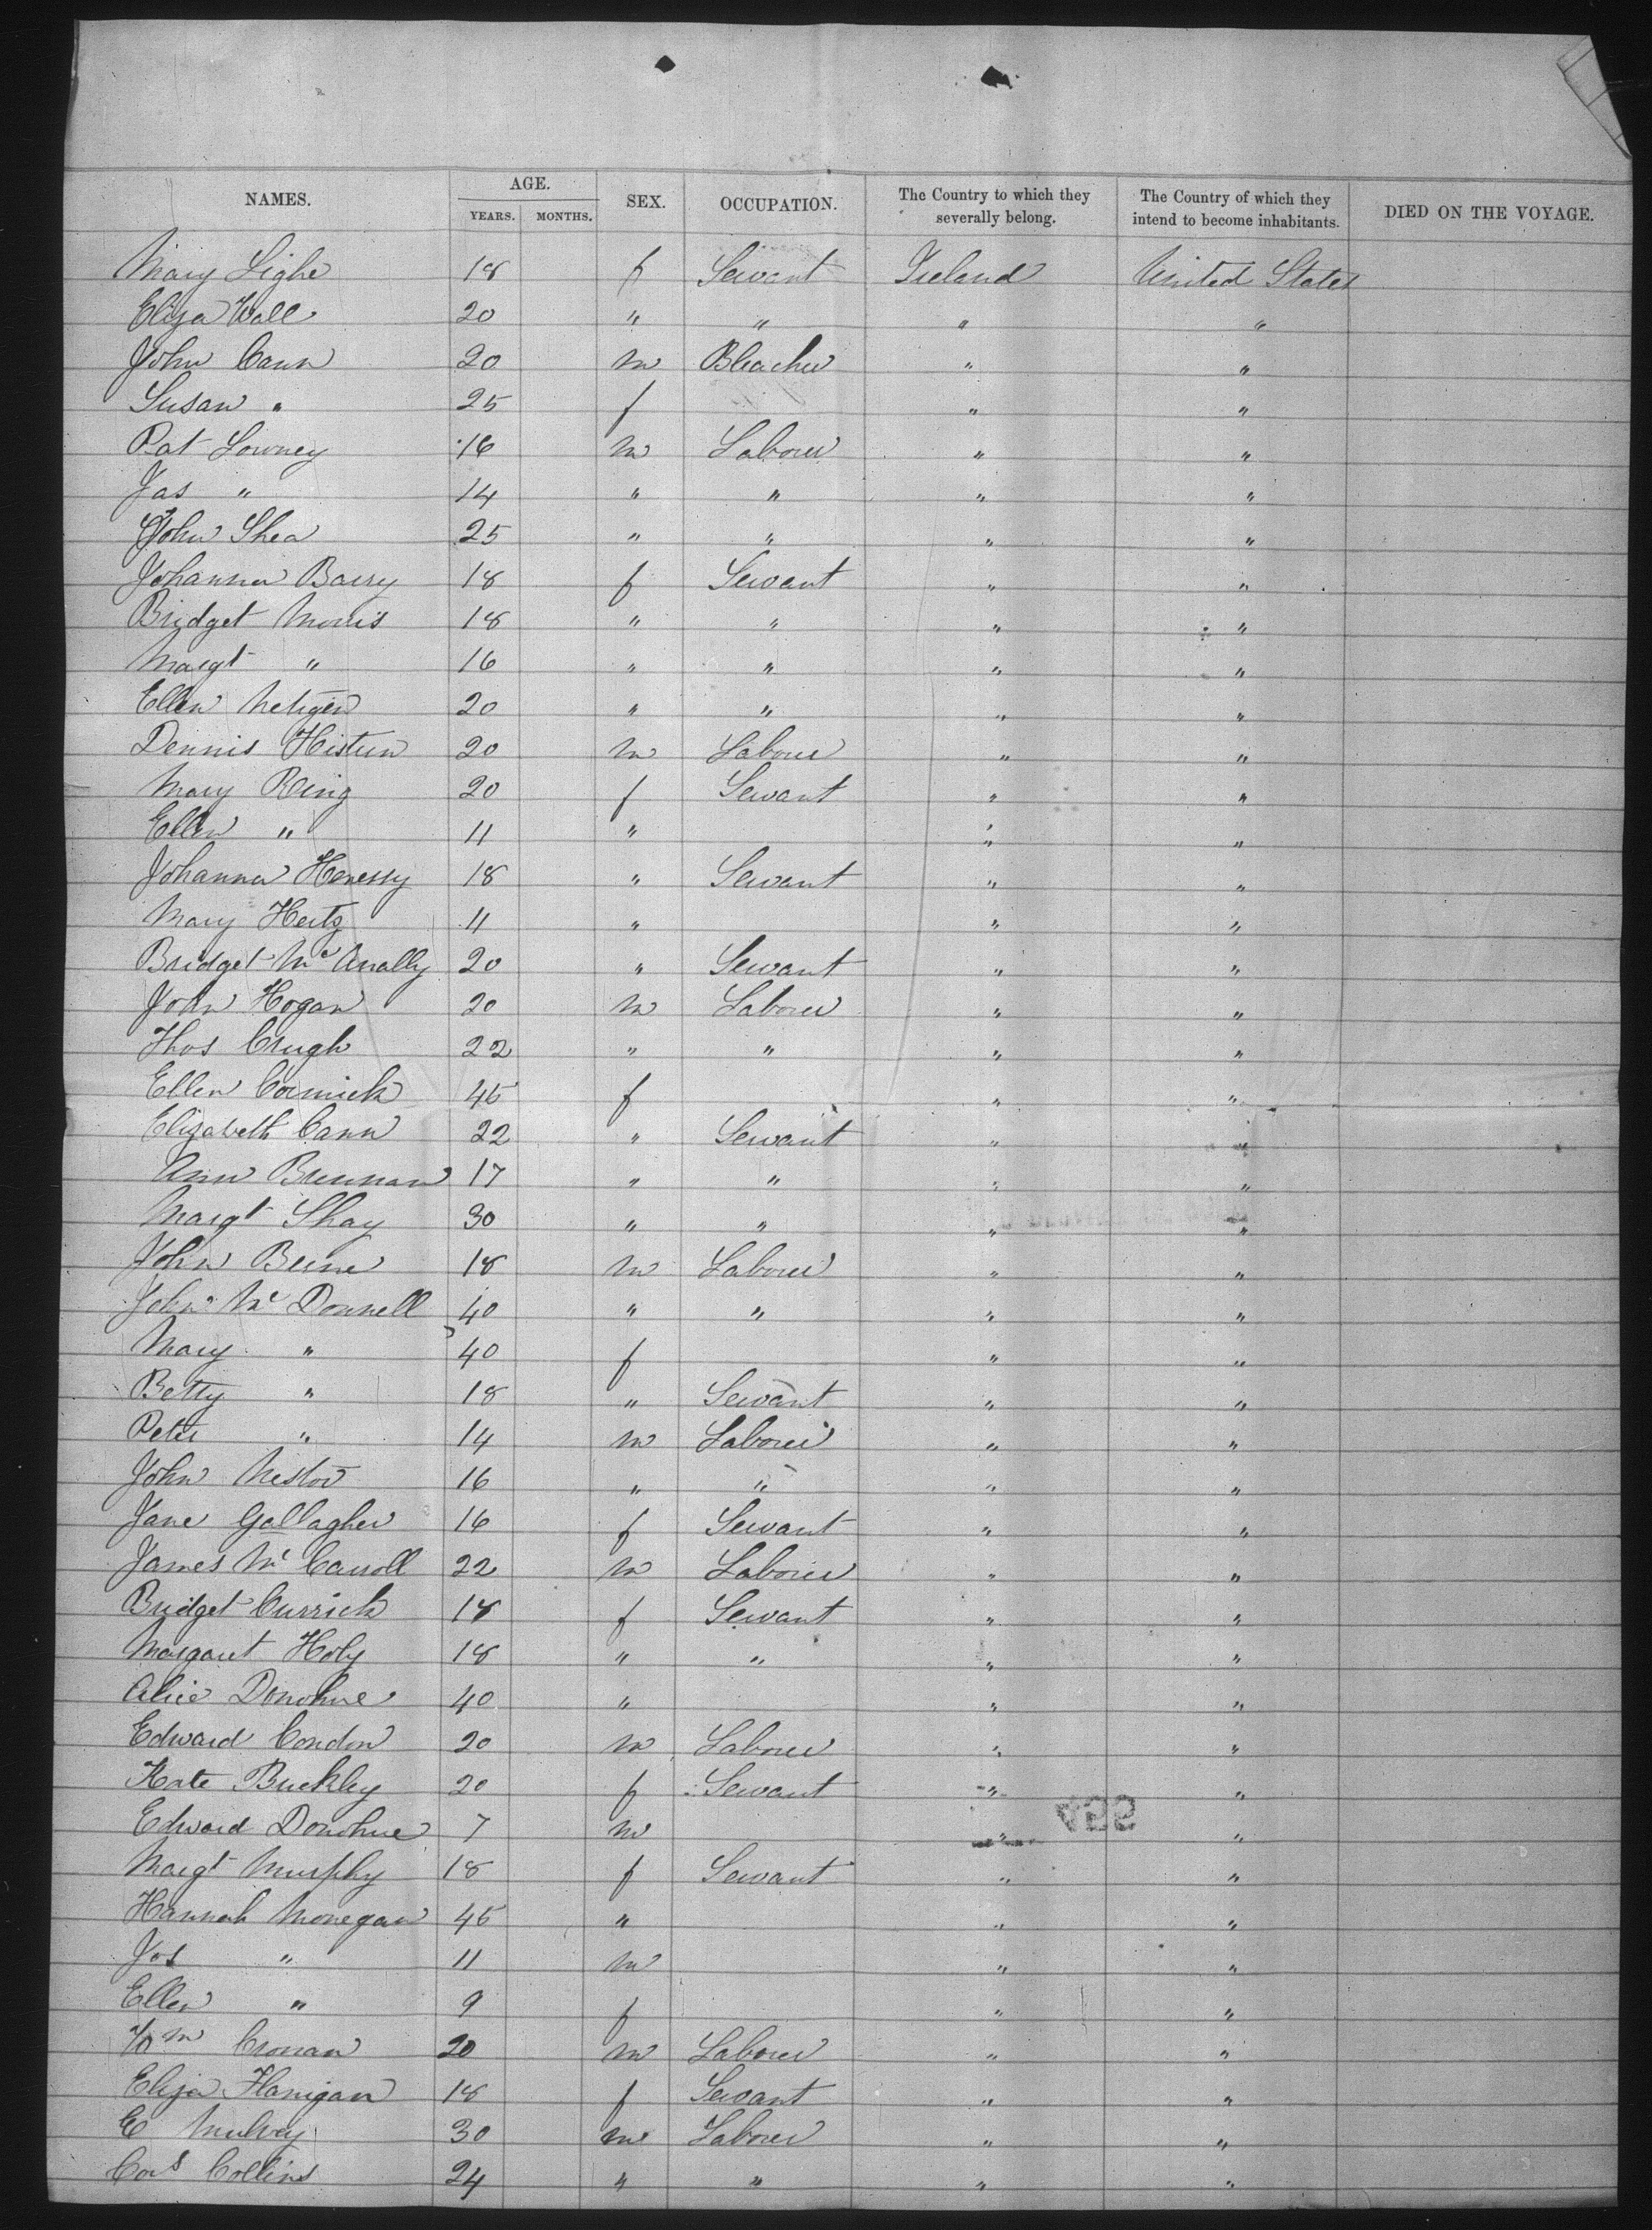 NAMES. AGE. YEARS. MONTHS. SEX. OCCUPATION. The Country to which they severally belong. The Country of which they intend to become inhabitants. DIED ON THE VOYAGE.
Mary Lighe 18 f Servant Ireland United States
Eliza Wall 20 " " " "
John Cann 20 m Bleacher " "
Susan " 25 f " "
Pat Lowney 16 m Laborer " "
Jas " 14 " " " "
John Shea 25 " " " "
Johanna Barry 18 f Servant " "
Bridget Morris 18 " " " "
Margt " 16 " " " "
Ellen Neligen 20 " " " "
Dennis Histun 20 m Laborer " "
Mary Ring 20 f Servant " "
Ellen " 11 " " "
Johanna Henessy 18 " Servant " "
Mary Hertz 11 " " "
Bridget Mc Anally 20 " Servant " "
John Hogan 20 m Laborer " "
Thos Crugh 22 " " " "
Ellen Cormick 45 f " "
Elizabeth Cann 22 " Servant " "
Ann Brennan 17 " " " "
Margt Shay 30 " " " "
John Beirne 18 m Laborer " "
John Mc Donnell 40 " " " "
Mary " 40 f " "
Betty " 18 " Servant " "
Peter " 14 m Laborer " "
John Nestor 16 " " " "
Jane Gallagher 16 f Servant " "
James Mc Carroll 22 m Laborer " "
Bridget Currick 18 f Servant " "
Margaret Holy 18 " " " "
Alice Donohue 40 " " "
Edward Condon 20 m Laborer " "
Kate Buckley 20 f Servant " "
Edward Donohue 7 m " "
Margt Murphy 18 f Servant " "
Hannah Monegan 45 " " "
Jos " 11 m " "
Ellen " 9 f " "
Wm Cronan 20 m Laborer " "
Eliza Flanigan 18 f Servant " "
E Mulvey 30 m Laborer " "
Cors Collins 24 " " " "